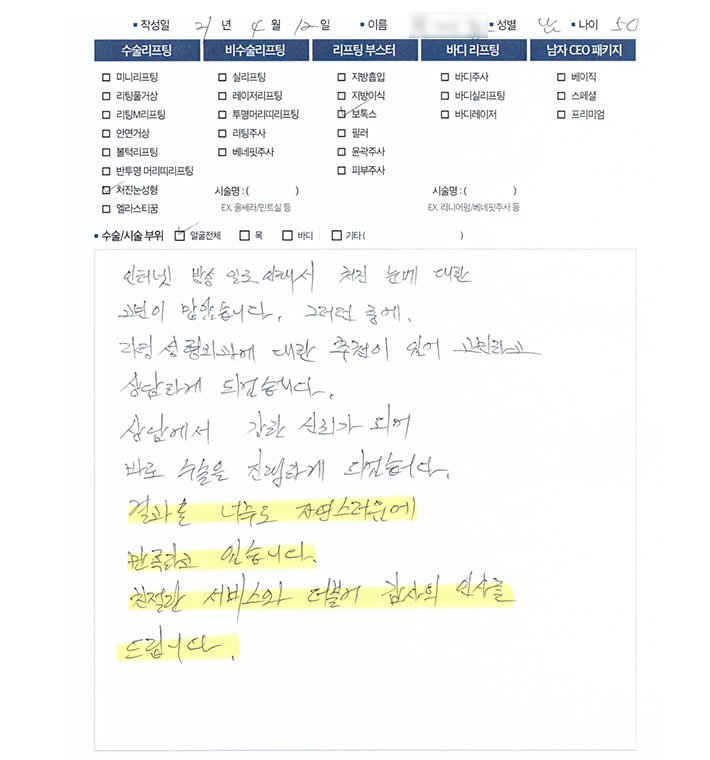 ▪ 작성일 21 년 4 월 12 일 ▪ 이름 ▪ 성별 남 ▪ 나이 50
수술리프팅 비수술리프팅 리프팅 부스터 바디 리프팅 남자 CEO 패키지
□ 미니리프팅 □ 실리프팅 □ 지방흡입 □ 바디주사 □ 베이직
□ 리팅풀거상 □ 레이저리프팅 □ 지방이식 □ 바디실리프팅 □ 스페셜
□ 리팅M리프팅 □ 투명머리띠리프팅 ☑ 보톡스 □ 바디레이저 □ 프리미엄
□ 안면거상 □ 리팅주사 □ 필러
□ 볼턱리프팅 □ 베네핏주사 □ 윤곽주사
□ 반투명 머리띠리프팅 □ 피부주사
☑ 처진눈성형 시술명 : ( ) 시술명 : ( )
□ 엘라스티꿈 EX. 울쎄라/민트실 등 EX. 리니어펌/베네핏주사 등
▪ 수술/시술 부위 ☑ 얼굴전체 □ 목 □ 바디 □ 기타 ( )
인터넷 방송 일로 인해서 처진 눈에 대한
고민이 많았습니다. 그러던 중에,
리팅성형외과에 대한 추천이 있어 고민하고
상담하게 되었습니다.
상담에서 강한 신뢰가 되어
바로 수술을 진행하게 되었습니다.
결과는 너무도 자연스러운에
만족하고 있습니다.
친절한 서비스와 더불어 감사의 인사를
드립니다.